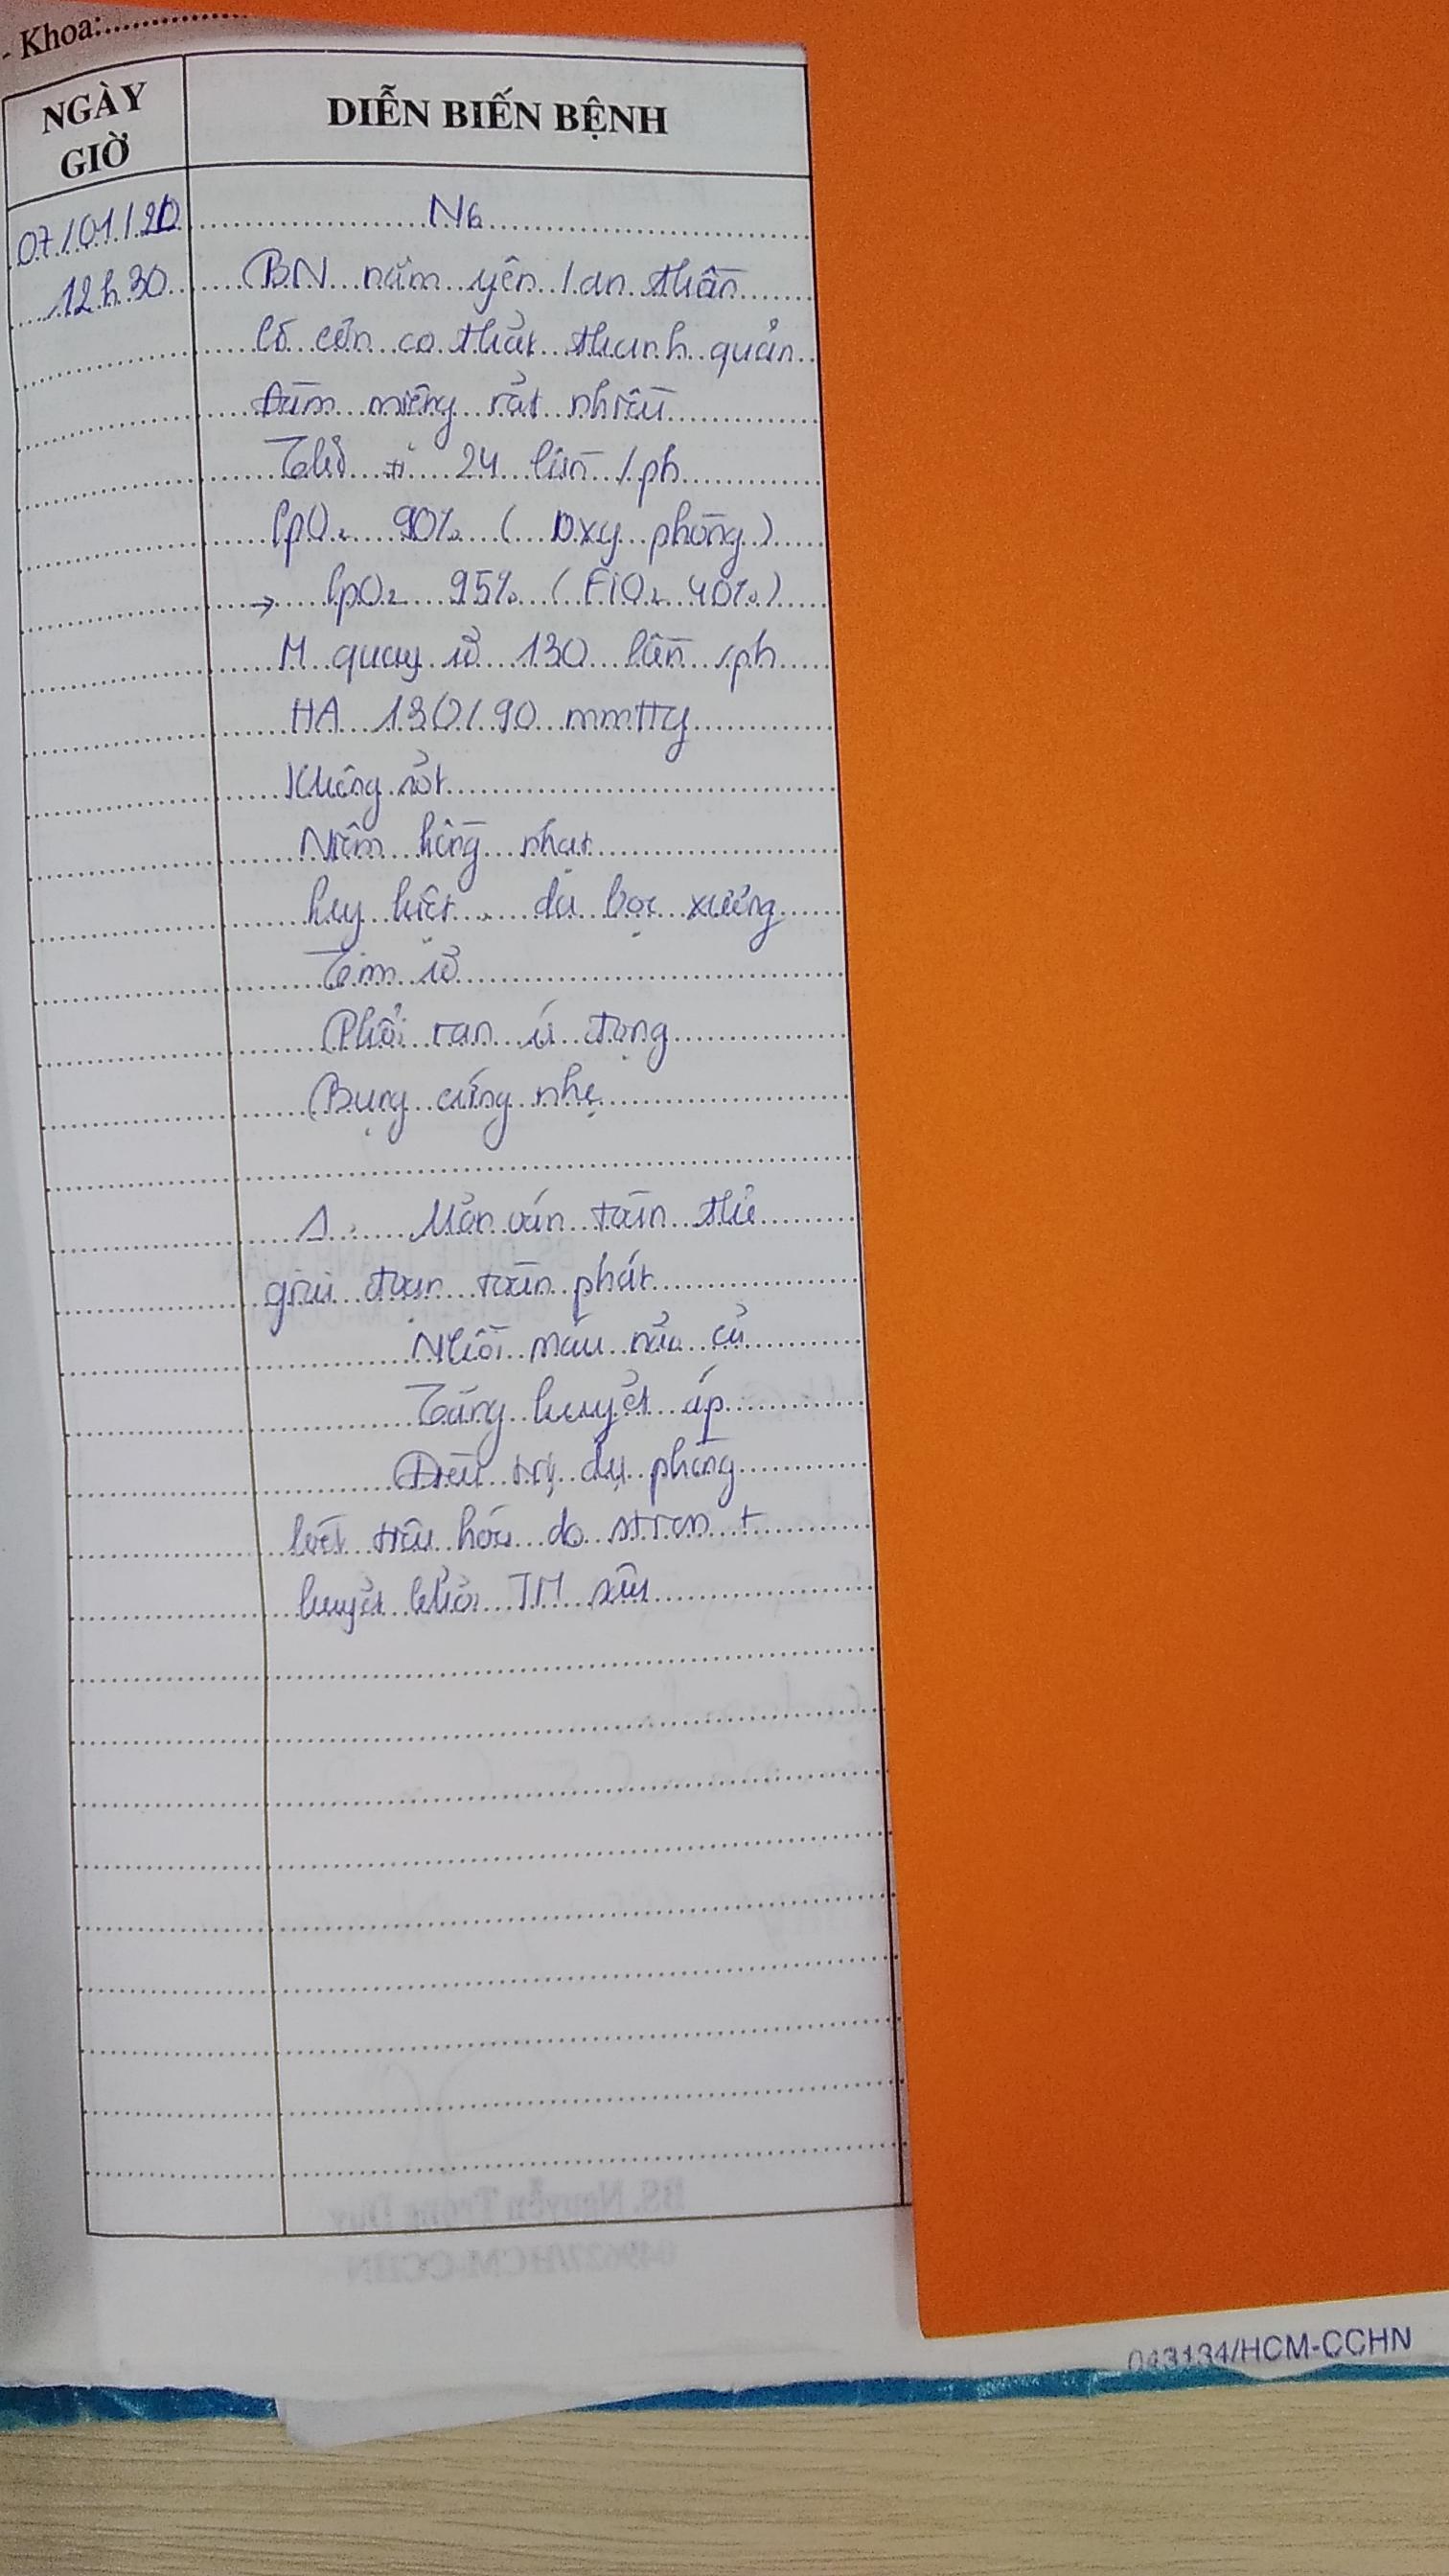 - Khoa:
NGÀY GIỜ
DIỄN BIẾN BỆNH
07/01/20
N6
12h30
BN nằm yên / an thần
Có cơn co thắt thanh quản
Đàm miệng rất nhiều
Thở 24 lần /ph
SpO2 90% ( Oxy phòng )
→ SpO2 95% ( FiO2 40% )
M quay rõ 130 lần /ph
HA 130/90 mmHg
Không sốt
Niêm hồng nhạt
huy hiệt da bọc xương
Tim rõ
Phổi ran ứ đọng
Bụng cứng nhẹ
Δ: Uốn ván toàn thể
giai đoạn toàn phát
Nhồi máu não cũ
Tăng huyết áp
Điều trị dự phòng
loét tiêu hóa do stress +
huyết khối TM sâu
BS. Nguyễn Trọng Duy
049627/HCM-CCHN
043134/HCM-CCHN